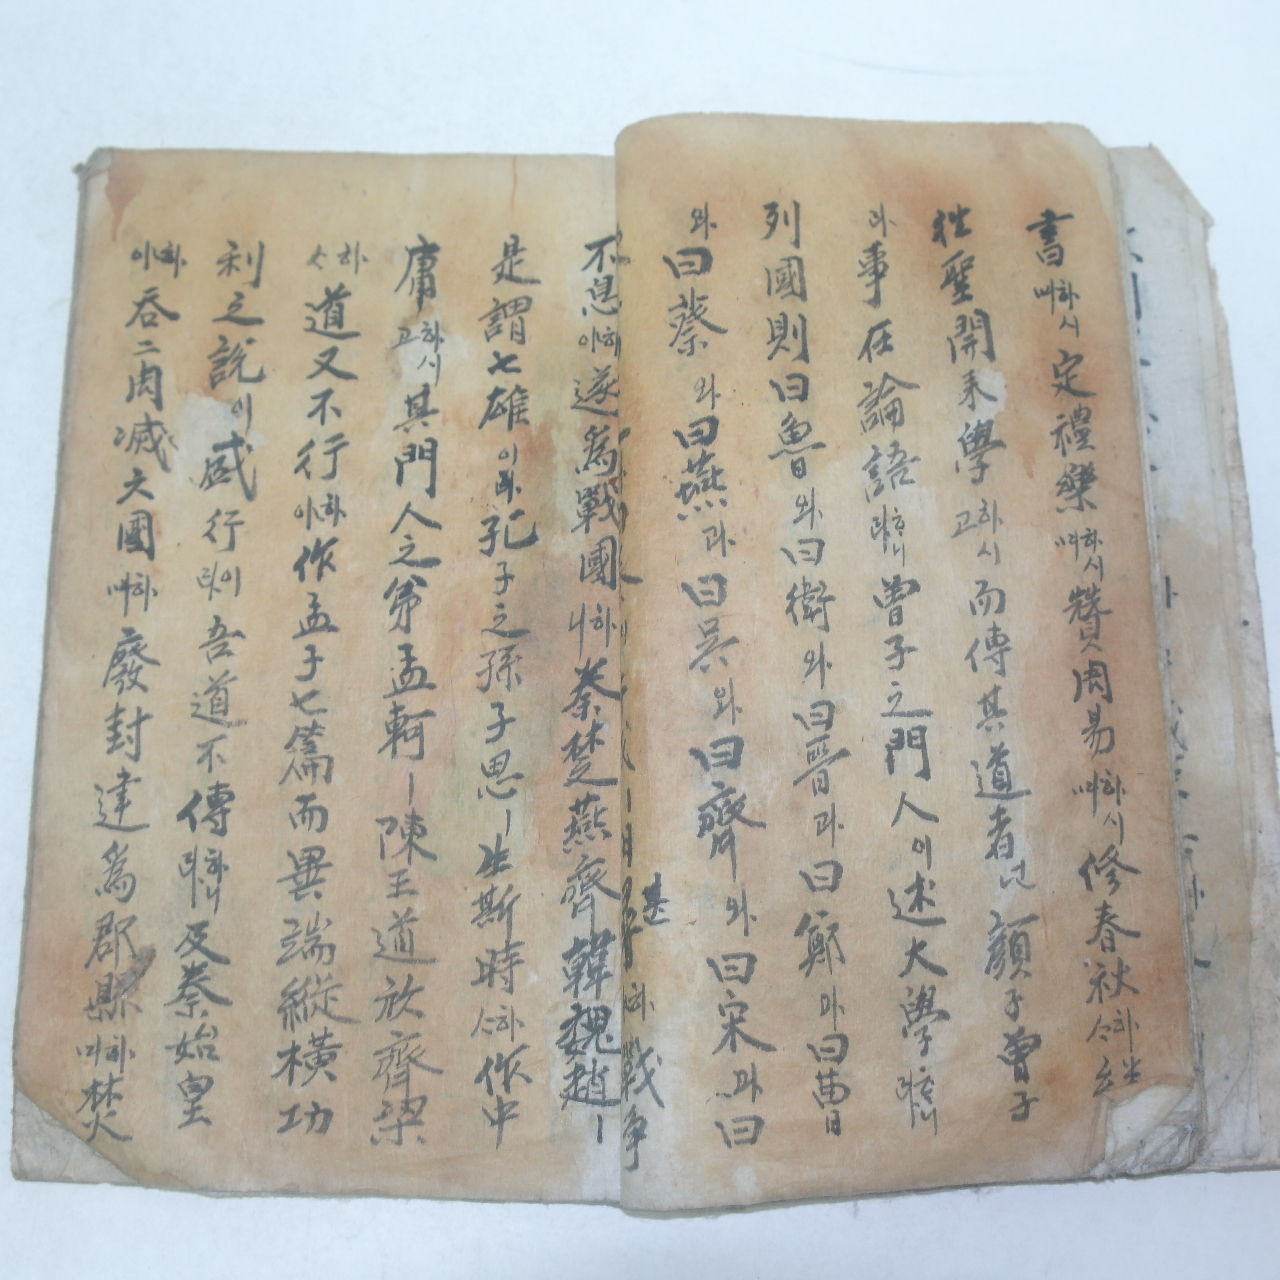 書여하시定禮樂여하시贊周易여하시修春秋하사繼
往聖開來學하시고而傳其道者는顔子曾子
라事在論語라하니曾子之門人이述大學라하니
列國則曰魯와曰衛와曰晉과曰鄭과曰曹
와曰蔡와曰燕과曰吳와曰齊와曰宋과曰
不息이하야遂爲戰國하니秦楚燕齊韓魏趙ㅣ
是謂七雄이라孔子之孫子思ㅣ生斯時하사作中
庸하시고其門人之弟孟軻ㅣ陳王道於齊梁
하사道又不行이하야作孟子七篇而異端縱橫功
利之說이盛行이라吾道不傳라하니及秦始皇
이하야呑二周滅六國하야廢封建爲郡縣하야焚